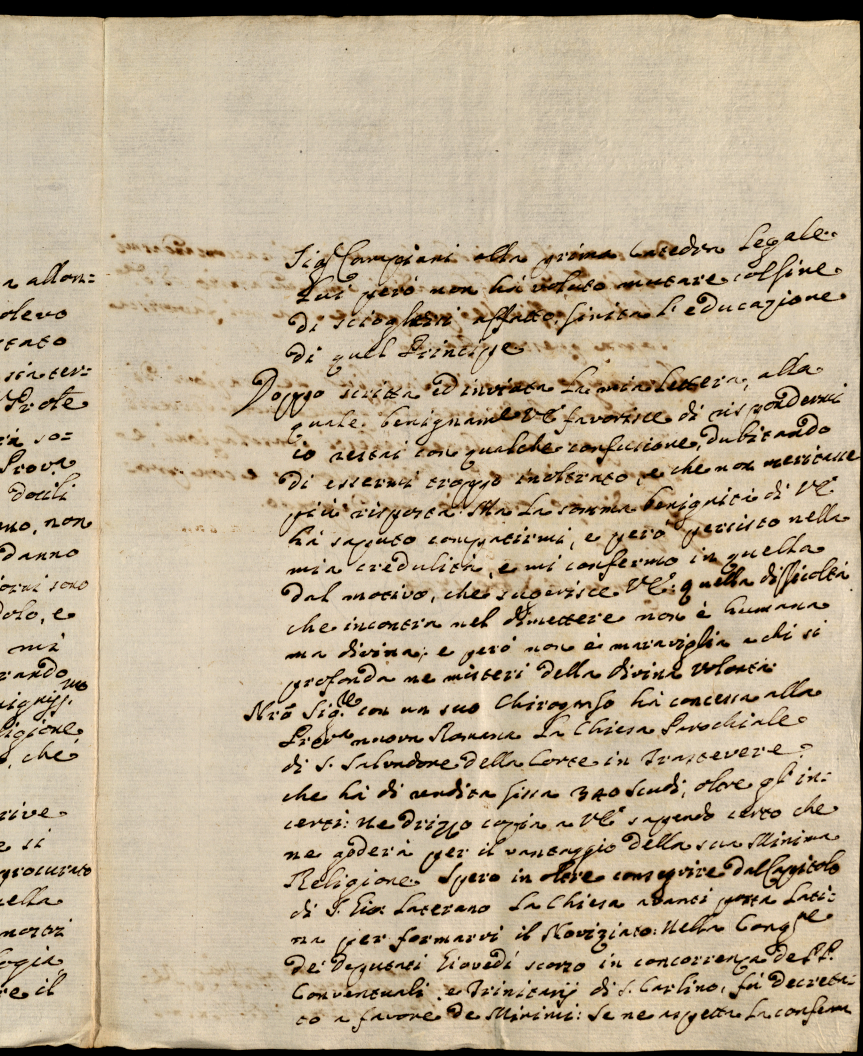 a allon=
olevo
tato
sia ter=
Prote
ra so=
Prova
docili
mo, non
danno
iorni sono
dolo, e
mi
rando
nigniss.mo
ligione
, che
rive
e si
procurato
uella
ogia
re il
Sig.r Campiani alla prima Catedra Legale.
Lui però non hà voluto mutare col fine
di sciogliersi affatto, finita l'educazione
di quel Principe
Doppo scritta ed inviata La mia Lettera, alla
quale benignam.e V.E. favorisce di rispondermi
io restai con qualche confusione, dubitando
di essermi troppo inoltrato, e che non meritasse
più risposta. Ma La somma benignità di V.E.
hà saputo compatirmi, e però persisto nella
mia credulità, e mi confermo in quella
dal motivo, che sugerisce V.E. quella difficoltà
che incontra nel dimettere non è humana
ma divina; e però non è maraviglia a chi si
profonda ne misteri della divina volontà.
Nrō Sig.re con un suo Chirografo hà concessa alla
Prov.a nuova Romana La Chiesa Parochiale
di S. Salvadore della Corte in Trastevere,
che hà di rendita fissa 340 scudi, oltre gl'in=
certi: Ne drizzo copia a V.E. sapendo certo che
ne goderà per il vantaggio della sua Minima
Religione. Spero in oltre conseguire dal Capitolo
di S. Gio: Laterano La Chiesa avanti porta Lati=
na per formarvi il Noviziato: Nella Cong.ne
de' Deputati Giovedì scorso in concorrenza de PP.
Conventuali, e Trinitarij di S. Carlino, fù decreta=
to a favore de Minimi: Se ne aspetta La conferm